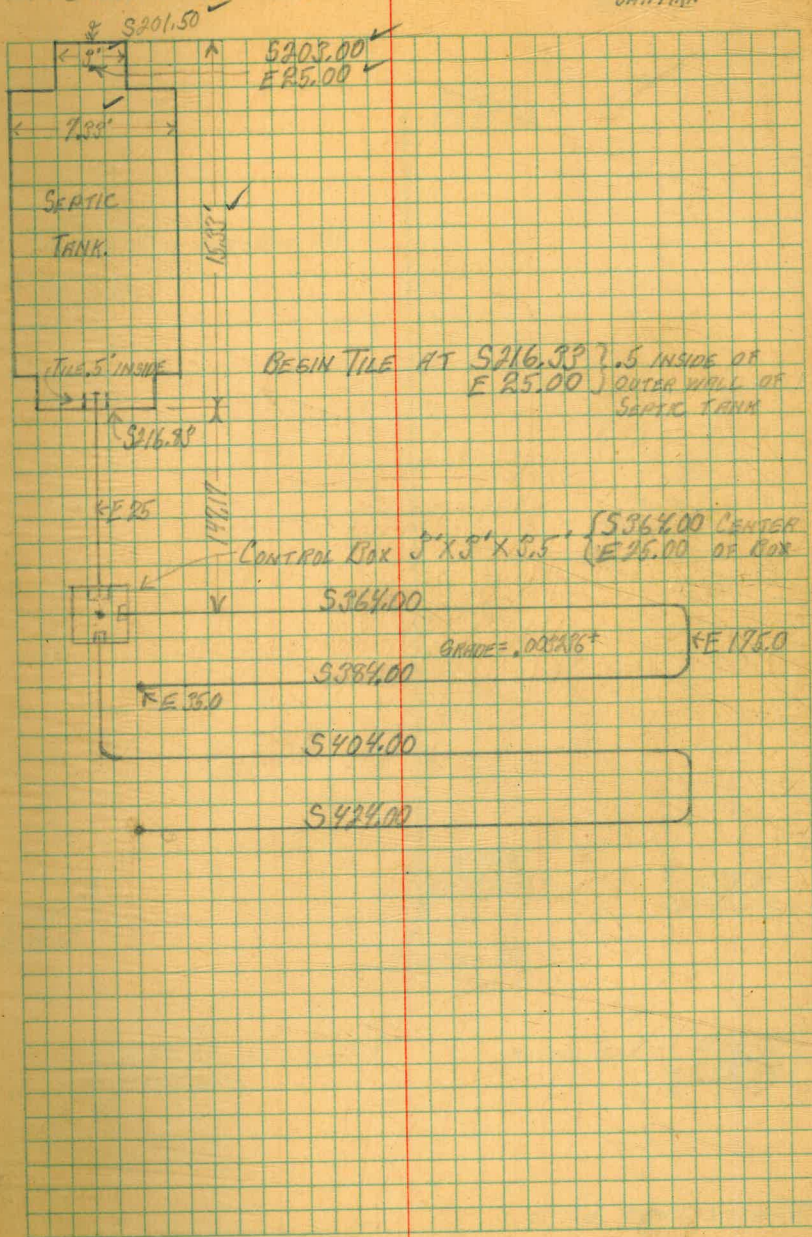 S201.50
S203.00
E25.00
3'
7.33'
SEPTIC
TANK.
15.33'
TILE .5' INSIDE
BEGIN TILE AT S216.33 } .5 INSIDE OF
E 25.00 } OUTER WALL OF
SEPTIC TANK
S216.83
E 25
147.17
CONTROL BOX 3' X 3' X 3.5' { S364.00 CENTER
{ E 25.00 OF BOX
S364.00
GRADE = .003236±
E 175.0
S384.00
E 35.0
S404.00
S424.00